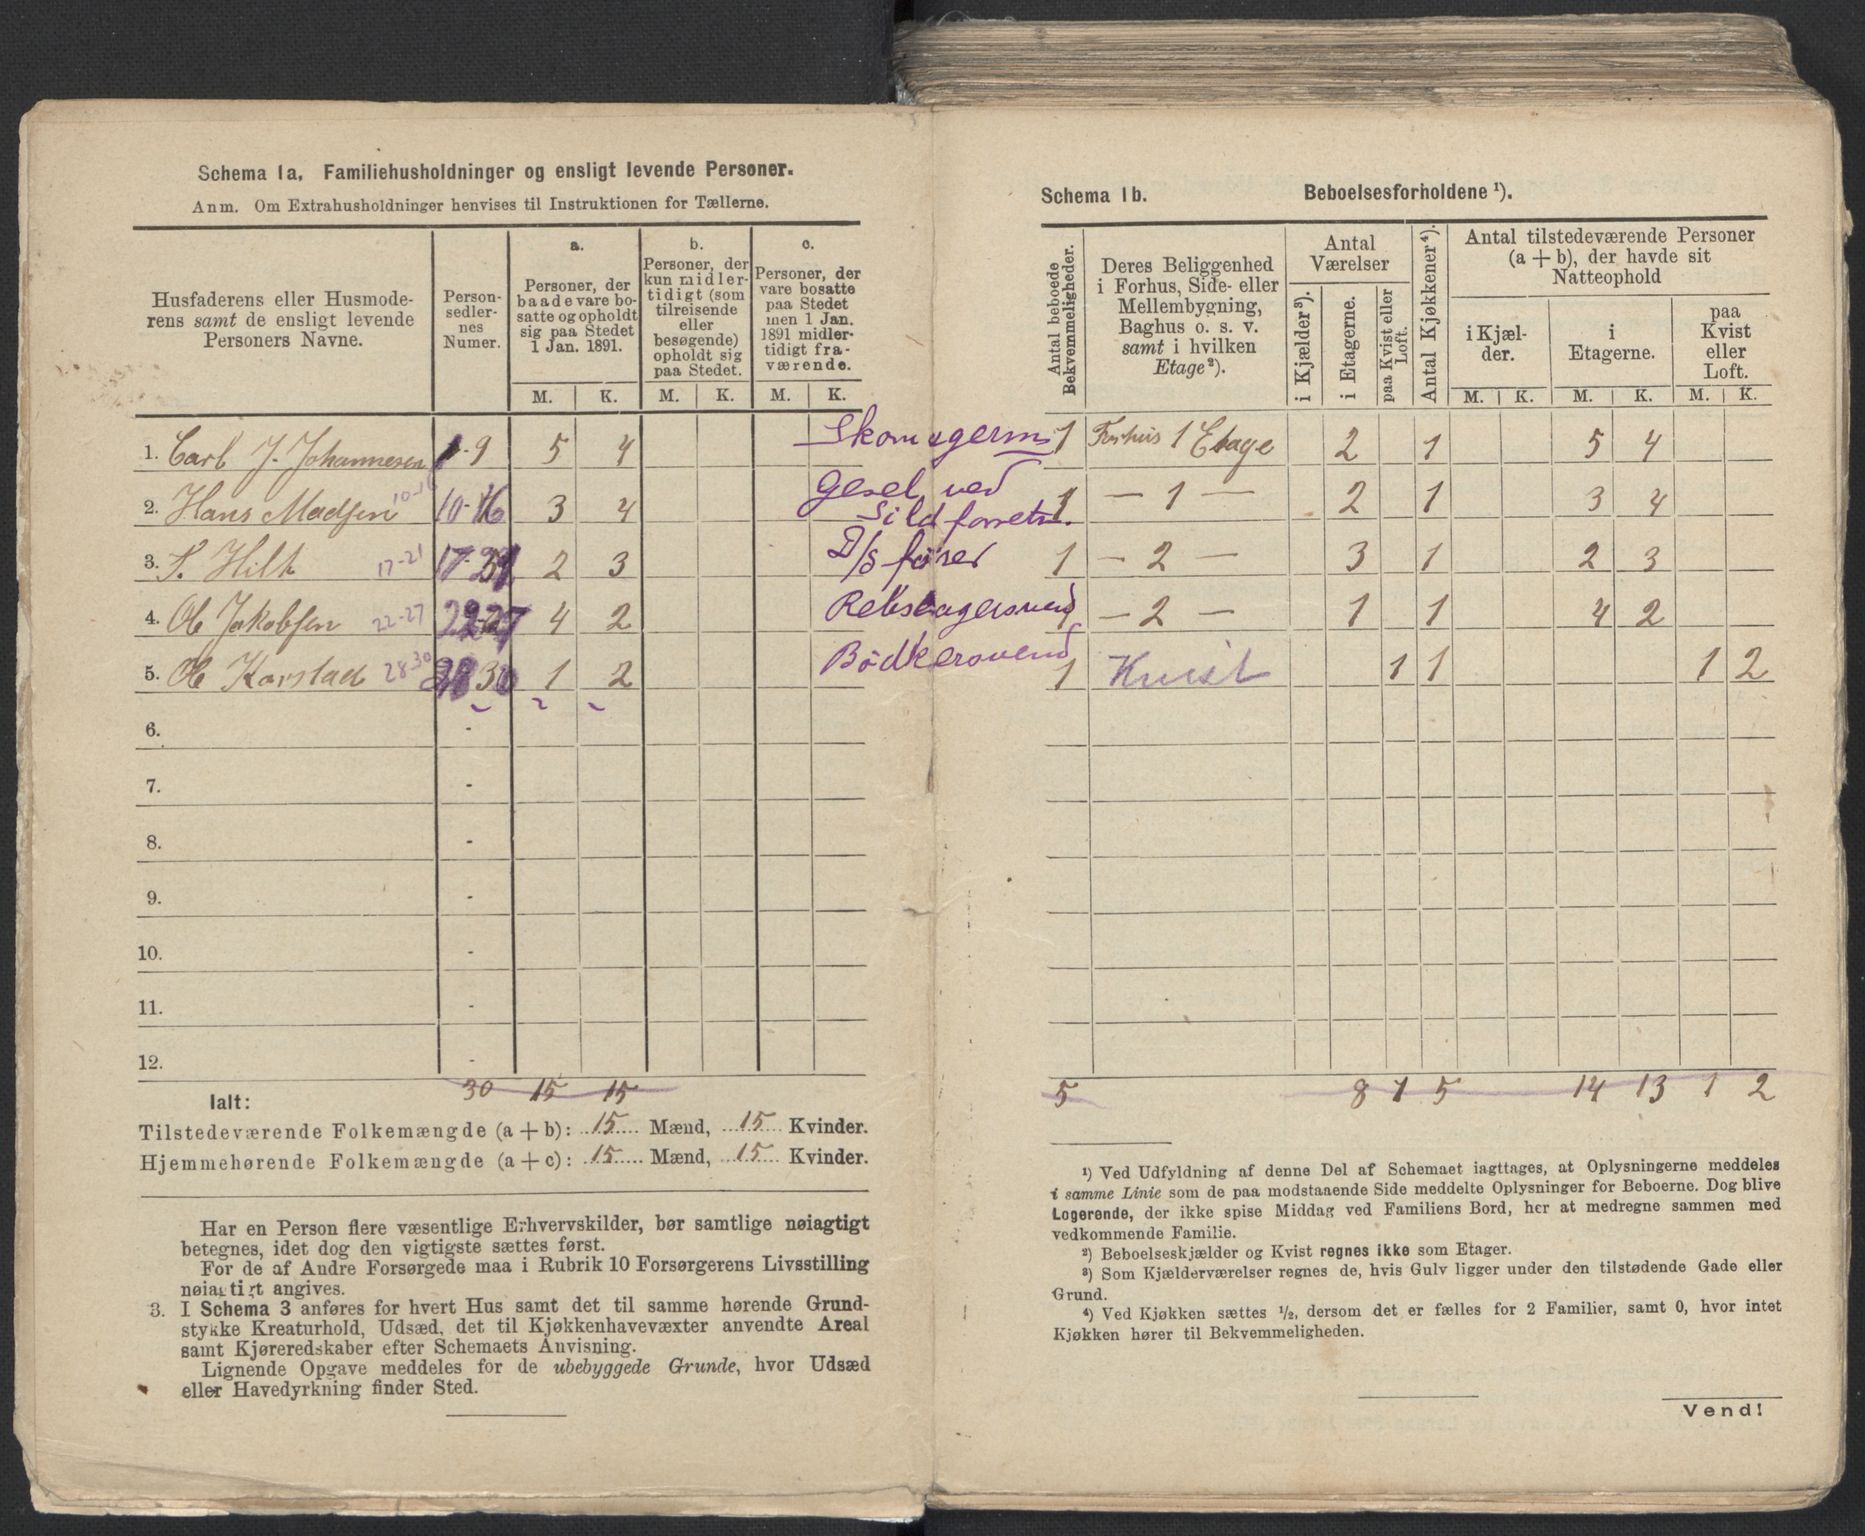 Schema 1a. Familiehusholdninger og ensligt levende Personer.
Anm. Om Extrahusholdninger henvises til Instruktionen for Tællerne.
Husfaderens eller Husmoderens samt de ensligt levende Personers Navne.
Personsedlernes Numer.
a.
Personer, der baade vare bosatte og opholdt sig paa Stedet 1 Jan. 1891.
b.
Personer, der kun midlertidigt (som tilreisende eller besøgende) opholdt sig paa Stedet.
c.
Personer, der vare bosatte paa Stedet men 1 Jan. 1891 midlertidigt fraværende.
M. K. M. K. M. K.
1. Carl J. Johannesen 1-9 5 4 Skomagerm
2. Hans Madsen 10-16 10-16 3 4 Gesel ved Sildforretn.
3. S. Hilt 17-21 17-21 2 3 D/s fører
4. Ole Jakobsen 22-27 22-27 4 2 Rebslagersvend
5. Ole Karstad 28-30 28-30 1 2 Bødkersvend
6. -
7. -
8. -
9. -
10. -
11. -
12. -
30 15 15
Ialt:
Tilstedeværende Folkemængde (a + b): 15 Mænd, 15 Kvinder.
Hjemmehørende Folkemængde (a + c): 15 Mænd, 15 Kvinder.
Har en Person flere væsentlige Erhvervskilder, bør samtlige nøiagtigt
betegnes, idet dog den vigtigste sættes først.
For de af Andre Forsørgede maa i Rubrik 10 Forsørgerens Livsstilling
nøiagtigt angives.
3. I Schema 3 anføres for hvert Hus samt det til samme hørende Grund-
stykke Kreaturhold, Udsæd, det til Kjøkkenhavevæxter anvendte Areal
samt Kjøreredskaber efter Schemaets Anvisning.
Lignende Opgave meddeles for de ubebyggede Grunde, hvor Udsæd
eller Havedyrkning finder Sted.
Schema 1b. Beboelsesforholdene ¹).
Antal beboede Bekvemmeligheder.
Deres Beliggenhed i Forhus, Side- eller Mellembygning, Baghus o. s. v. samt i hvilken Etage²).
Antal Værelser
i Kjælder³).
i Etagerne.
paa Kvist eller Loft.
Antal Kjøkkener⁴).
Antal tilstedeværende Personer (a + b), der havde sit Natteophold
i Kjælder.
i Etagerne.
paa Kvist eller Loft.
M. K. M. K. M. K.
1 Forhus 1 Etage 2 1 5 4
1 — 1 — 2 1 3 4
1 — 2 — 3 1 2 3
1 — 2 — 1 1 4 2
1 Kvist 1 1 1 2
5 8 1 5 14 13 1 2
¹) Ved Udfyldning af denne Del af Schemaet iagttages, at Oplysningerne meddeles
i samme Linie som de paa modstaaende Side meddelte Oplysninger for Beboerne. Dog blive
Logerende, der ikke spise Middag ved Familiens Bord, her at medregne sammen med
vedkommende Familie.
²) Beboelseskjælder og Kvist regnes ikke som Etager.
³) Som Kjælderværelser regnes de, hvis Gulv ligger under den tilstødende Gade eller
Grund.
⁴) Ved Kjøkken sættes ½, dersom det er fælles for 2 Familier, samt 0, hvor intet
Kjøkken hører til Bekvemmeligheden.
Vend!